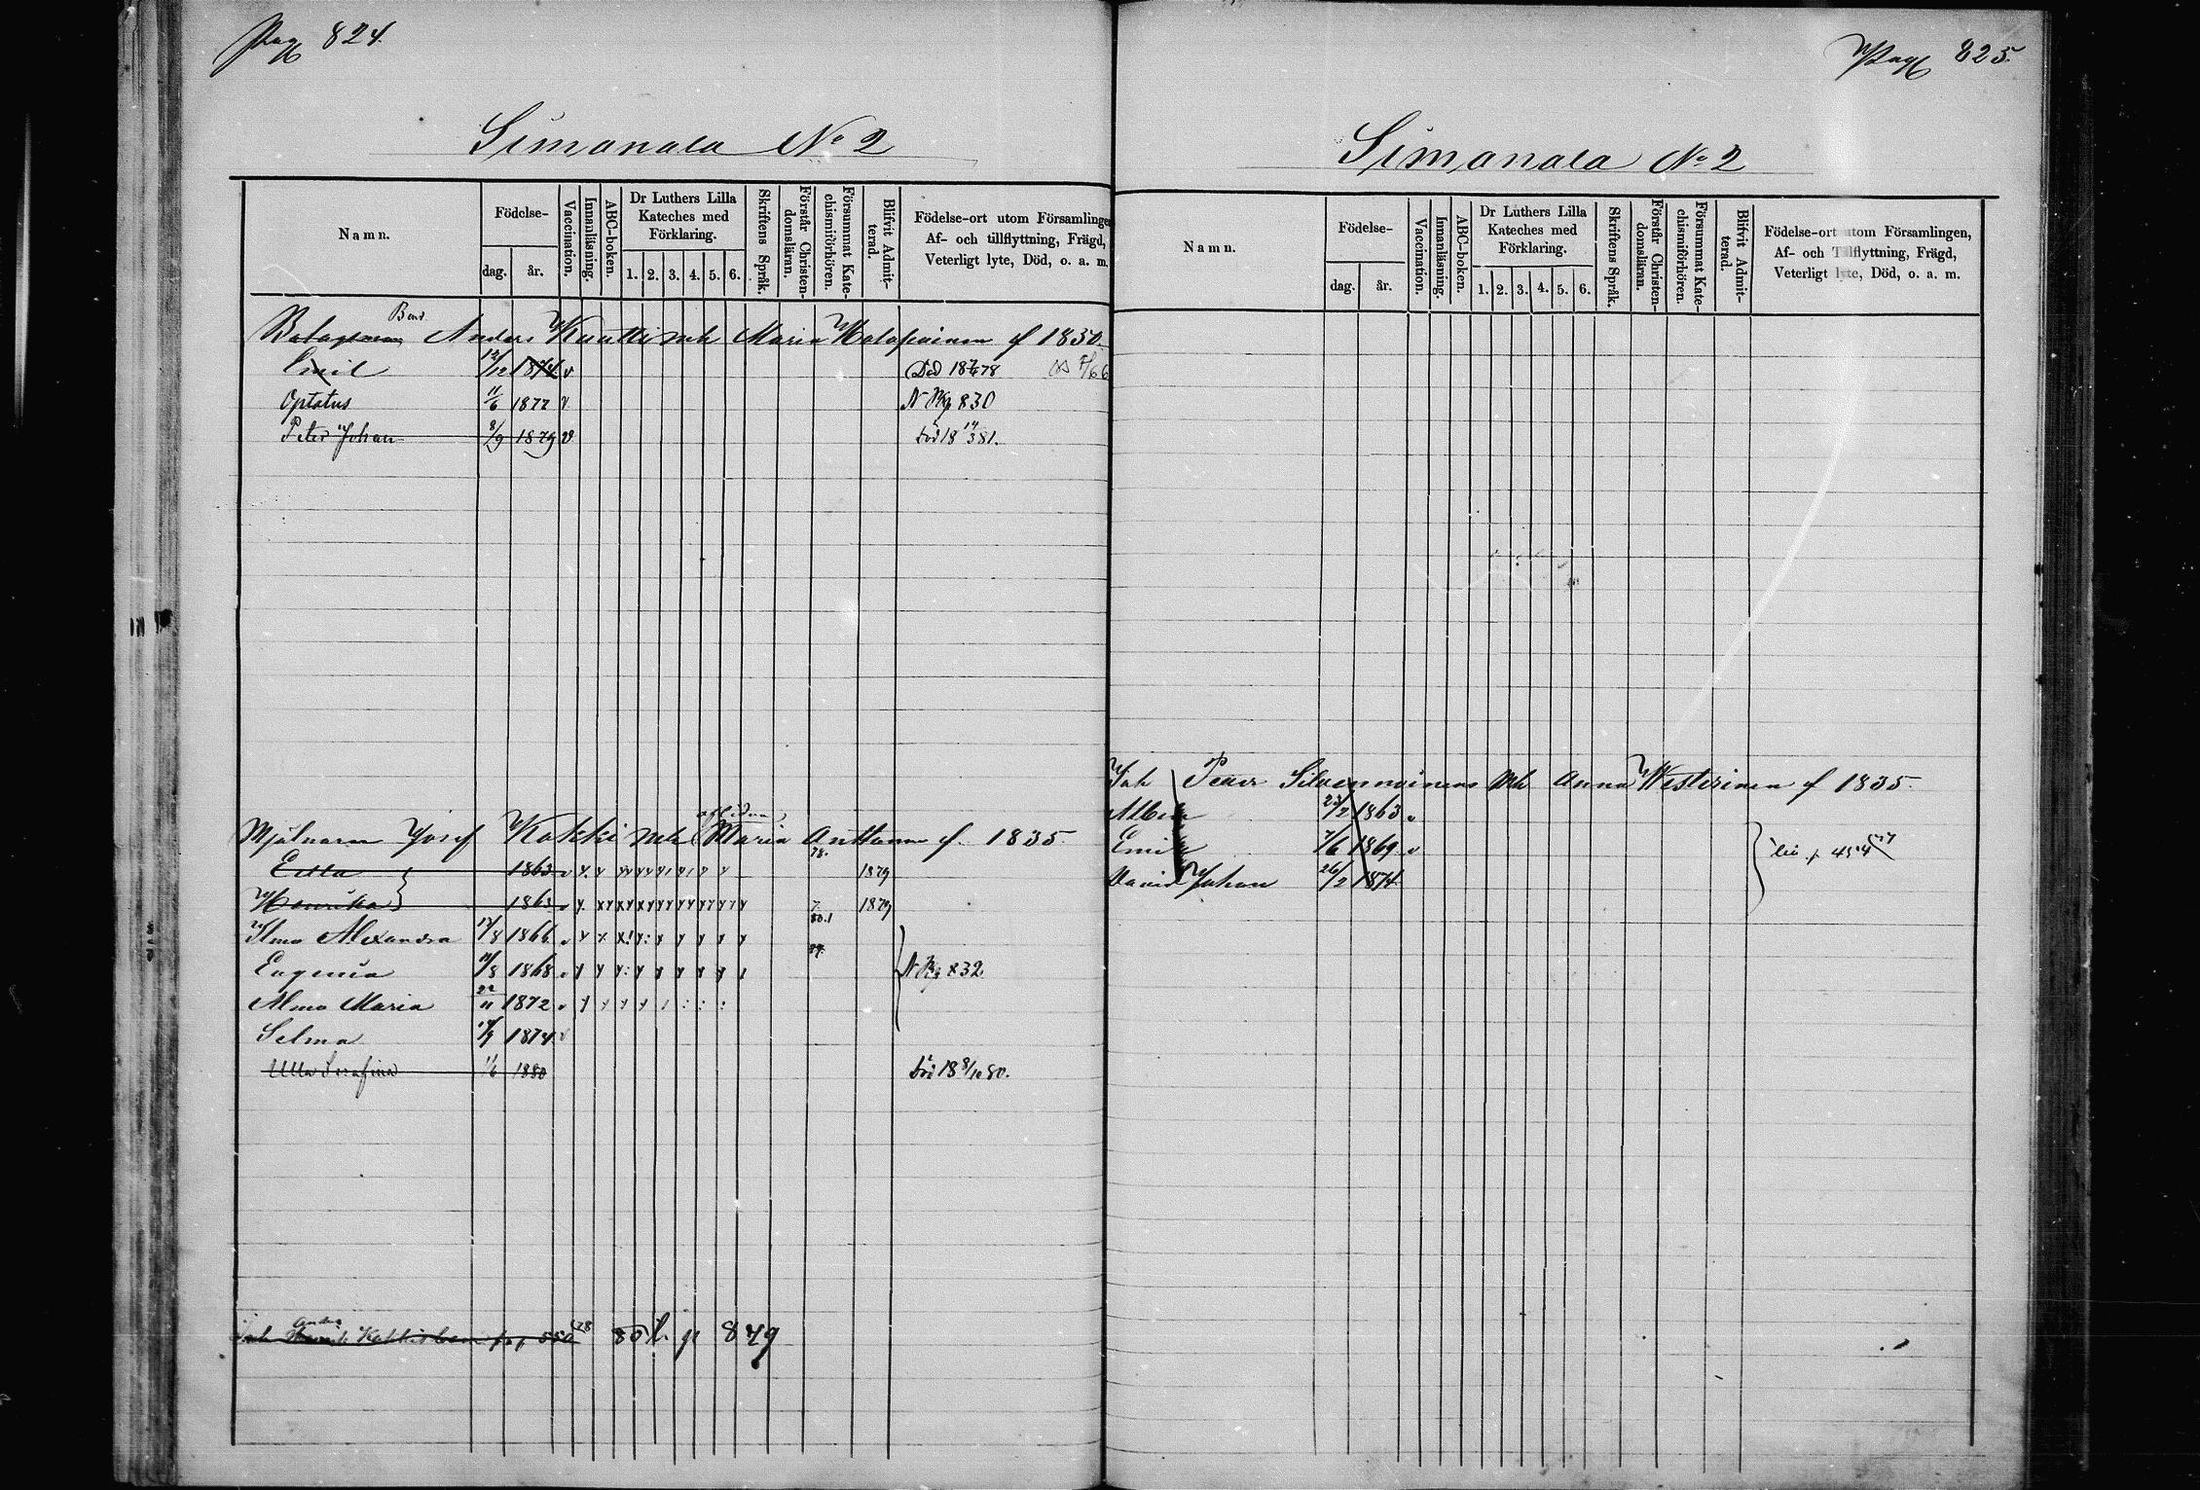 Pag 824.
Simanala No 2
Namn.
Födelse-
dag.
år.
Vaccination.
Innanläsning.
ABC-boken.
Dr Luthers Lilla
Kateches med
Förklaring.
1. 2. 3. 4. 5. 6.
Skriftens Språk.
Förstår Christen-
domsläran.
Försummat Kate-
chismiförhören.
Blifvit Admit-
terad.
Födelse-ort utom Församlingen
Af- och tillflyttning, Frägd,
Veterligt lyte, Död, o. a. m.
Anders Kuutti mh Maria f 1850.
Emil 12/12 1874 v Död 18 78
Optatus 11/6 1877 v N Pag 830
Peter Johan 8/9 1879 v död 18 14/3 81.
aflidna
Mjölnaren Josef Kokki mh Maria Auttonen f. 1835
78.
1863 v 1879
Henrika 1863 v 1879
80.1
Ilma Alexandra 1866 v
79.
Eugenia 1868 v N Pag 832
Alma Maria 22/11 1872 v
Selma 1874 v
Ulla Serafina 11/6 1880 död 18 8/10 80.
550 /78 849
Pag 825.
Simanala No 2
Namn.
Födelse-
dag.
år.
Vaccination.
Innanläsning.
ABC-boken.
Dr Luthers Lilla
Kateches med
Förklaring.
1. 2. 3. 4. 5. 6.
Skriftens Språk.
Förstår Christen-
domsläran.
Försummat Kate-
chismiförhören.
Blifvit Admit-
terad.
Födelse-ort utom Församlingen,
Af- och Tillflyttning, Frägd,
Veterligt lyte, Död, o. a. m.
Peter Silvennoinens mh Anna Westerinen f 1835.
Albin 1863 v
Emil 7/6 1869 v
David Johan 26/2 1874